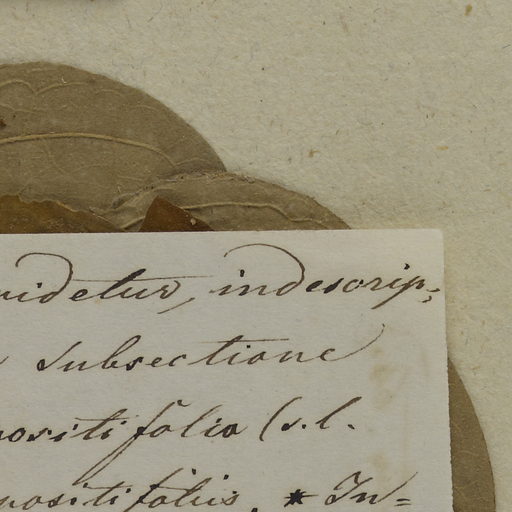 videtur, indescrip-
subsectione
positifolia (s.l.
positifoliis. * In=